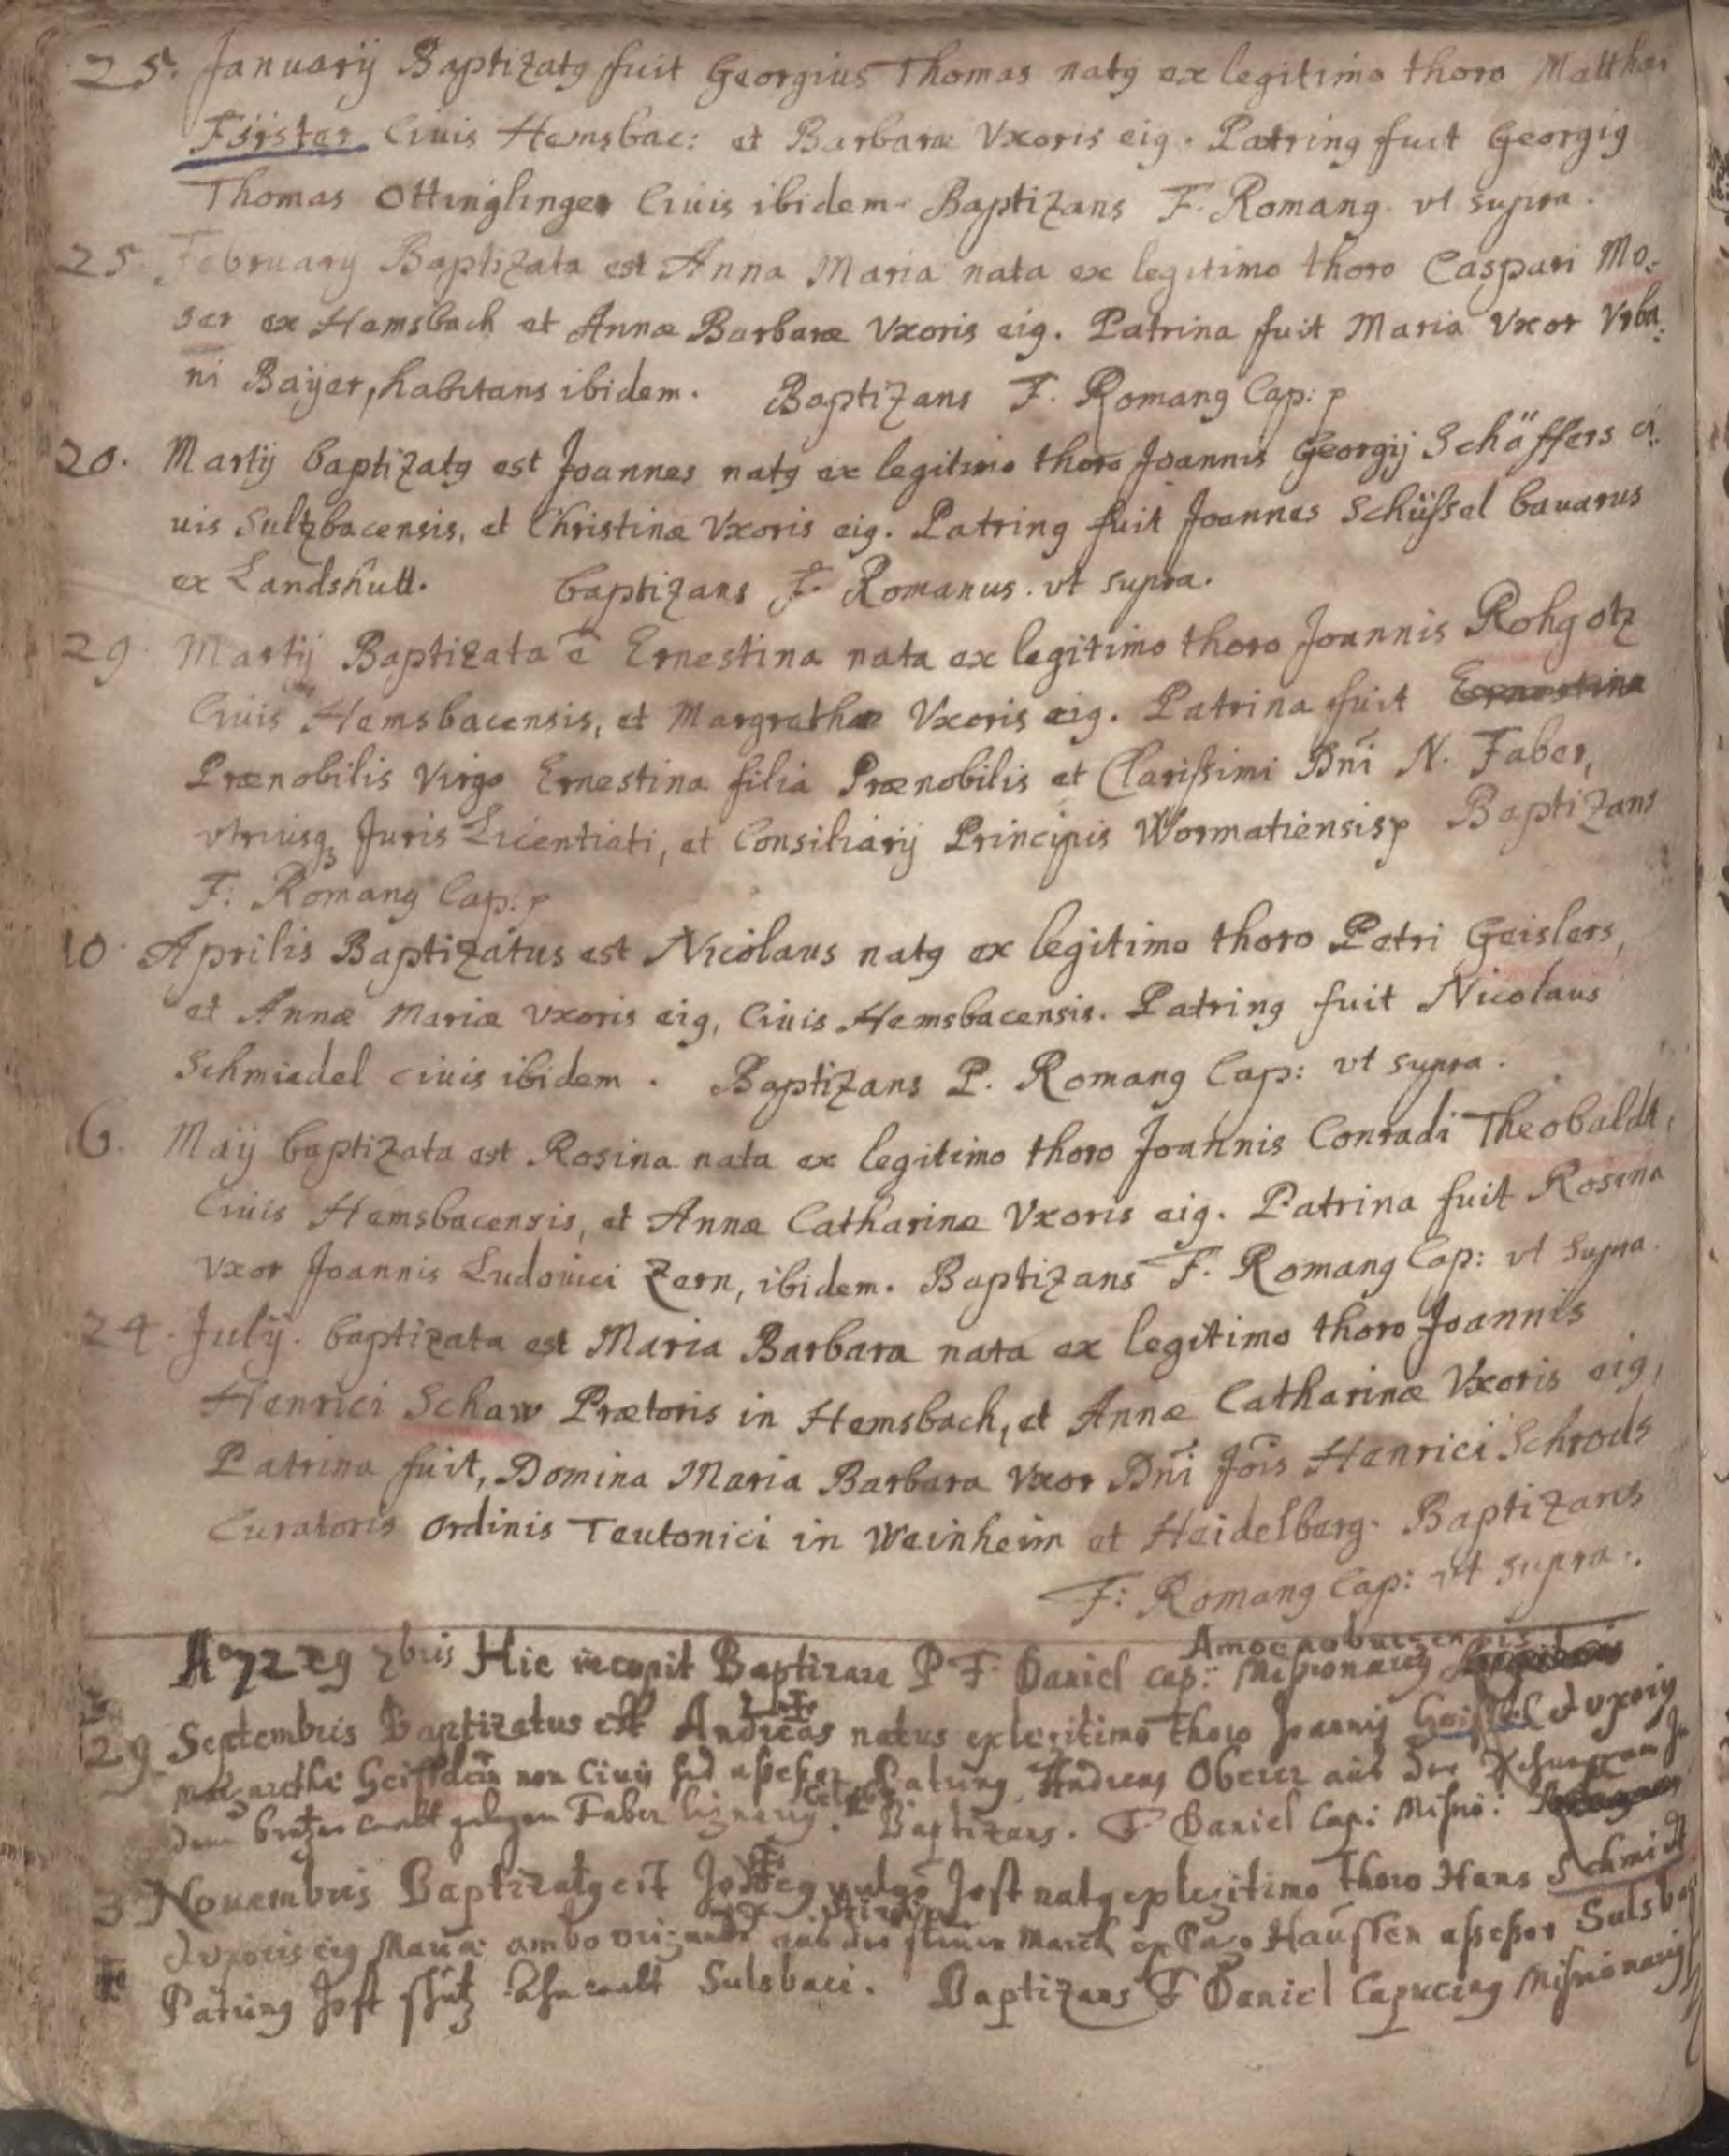 25. Januarij Baptizatg fuit Georgius Thomas natg ex legitimo thoro Matthæi
Förster Ciuis Hemsbac: et Barbaræ Vxoris eig. Patring fuit Georgig
Thomas Ottinglinger Ciuis ibidem. Baptizans F. Romang. vt supra.
25. February Baptizata est Anna Maria nata ex legitimo thoro Caspari Mo:
ser ex Hemsbach et Annæ Barbaræ Vxoris eig. Patrina fuit Maria Vxor Vrba:
ni Baÿer, habitans ibidem. Baptizans F. Romang Cap: p
20. Martij baptizatg est Joannes natg ex legitimo thoro Joannis Georgij Schäffers ci:
uis Sultzbacensis, et Christinæ Vxoris eig. Patring fuit Joannes Schüssel bauarus
ex Landshutt. baptizans F. Romanus. vt supra.
29. Martij Baptizata ē Ernestina nata ex legitimo thoro Joannis Rohgotz
Ciuis Hemsbacensis, et Margrathæ Vxoris eig. Patrina fuit Ernestina
Prænobilis Virgo Ernestina filia Prænobilis et Clarissimi Dn̄i N. Faber,
vtriusq3 Juris Licentiati, et Consiliarij Principis Wormatiensis p Baptizans
F: Romang Cap: p
10. Aprilis Baptizatus est Nicolaus natg ex legitimo thoro Petri Geislers,
et Annæ Mariæ Vxoris eig, Ciuis Hemsbacensis. Patring fuit Nicolaus
Schmiedel ciuis ibidem. Baptizans P. Romang Cap: vt supra.
6. Maij baptizata est Rosina nata ex legitimo thoro Joannis Conradi Theobaldt,
Ciuis Hemsbacensis, et Annæ Catharinæ Vxoris eig. Patrina fuit Rosina
Vxor Joannis Ludouici Zern, ibidem. Baptizans F. Romang Cap: vt supra.
24. Julÿ. baptizata est Maria Barbara nata ex legitimo thoro Joannis
Henrici Schaw Prætoris in Hemsbach, et Annæ Catharinæ Vxoris eig,
Patrina fuit, Domina Maria Barbara Vxor Dn̄i Jōis Henrici Schrods
Curatoris Ordinis Teutonici in Weinheim et Heidelberg. Baptizans
F: Romang Cap: vt supra.
Amoenoburgensis
7bris Hic incepit Baptizare P F. Daniel Cap: Missionarig
29 Septembris Baptizatus est Andreas natus ex legitimo thoro Joannis et vxoris
Margarethæ non Ciuis sed assessor Patring Andreas Oberer aus der
Faber lignarig. Baptizans. F Daniel Cap: Missio:
3 Nouembris Baptizatg est vulgo Jost natg ex legitimo thoro Hans Schmidt
et vxoris eig Maria ambo ex Pago Haussen assessor Sulsbac
Patring Jost Schutz Sulsbaci. Baptizans F Daniel Capucing Missionarig